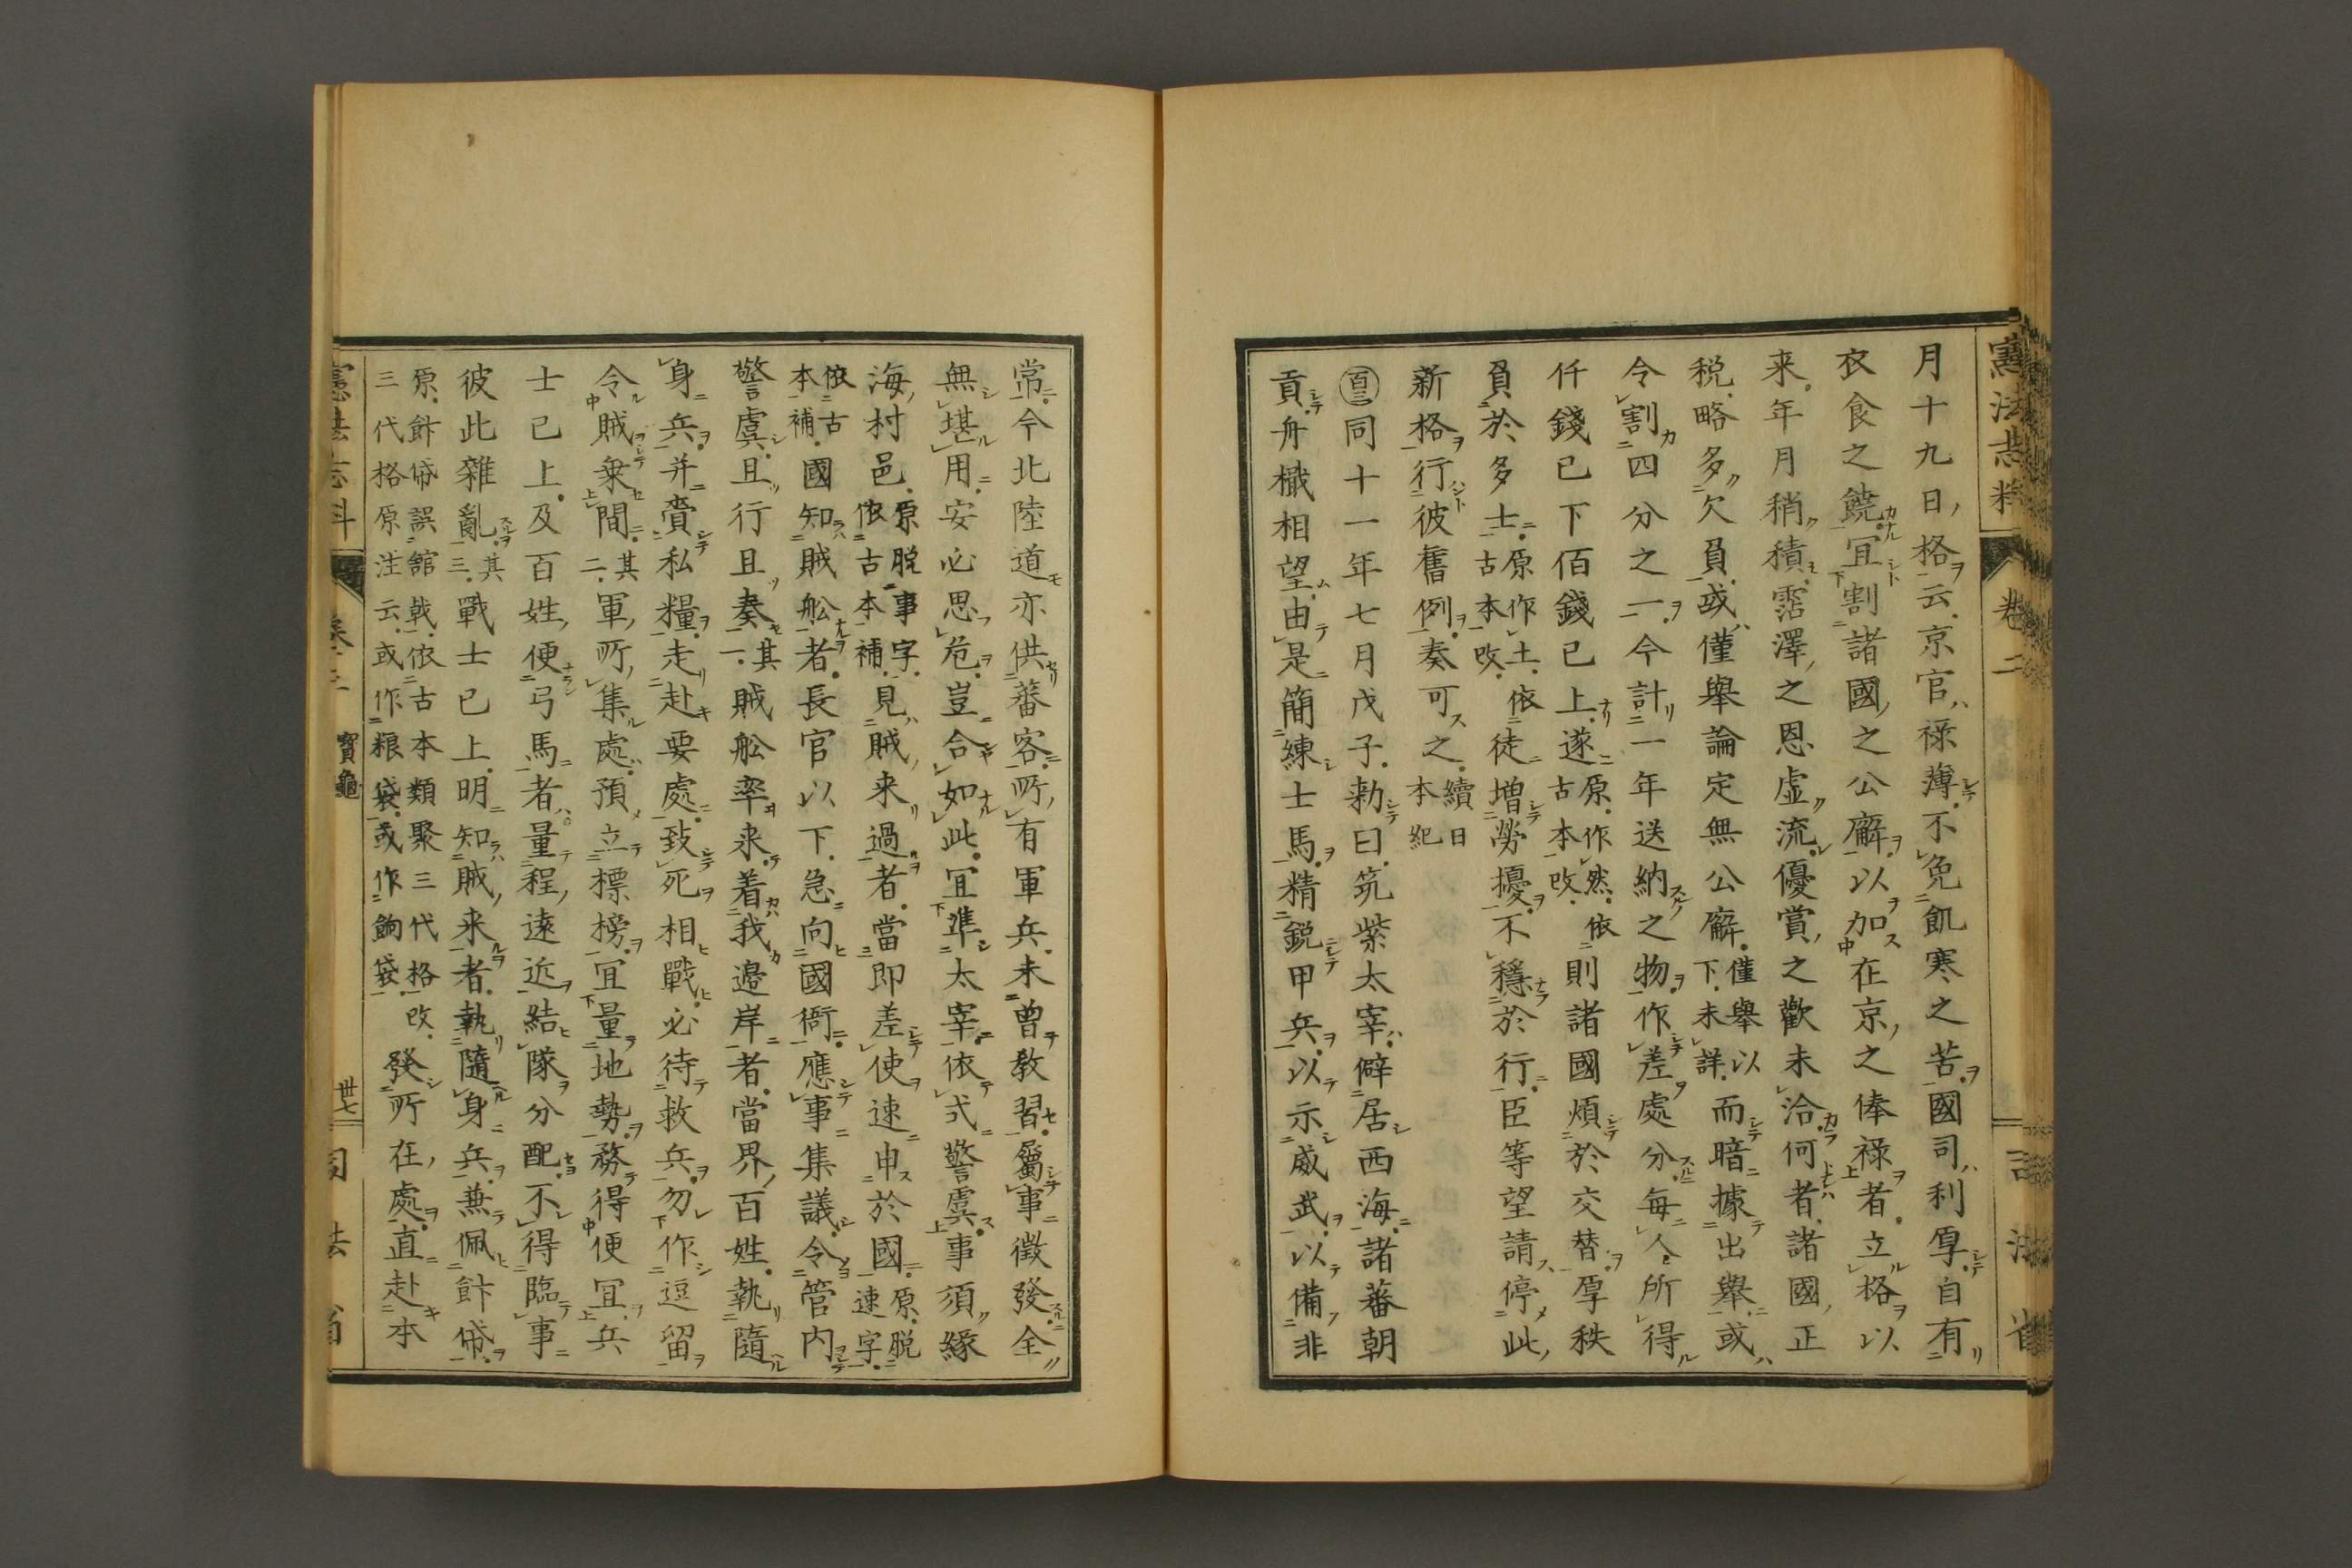 憲法志料
卷二
司法省
月十九日格云京官禄薄不免飢寒之苦國司利厚自有
衣食之饒宜割諸國之公廨以加在京之俸禄者立格以
来年月稍積霑澤之恩虚流優賞之歡未洽何者諸國正
税略多欠負或僅舉論定無公廨僅舉以下未詳而暗據出舉或
令割四分之一今計一年送納之物作差處分每人所得
仟錢已下佰錢已上遂原作然依古本改則諸國煩於交替厚秩
負於多士原作土依古本改徒増勞擾不穩於行臣等望請停此
新格行彼舊例奏可之續日本紀
百三同十一年七月戊子勅曰筑紫太宰僻居西海諸蕃朝
貢舟檝相望由是簡練士馬精鋭甲兵以示威武以備非
常今北陸道亦供蕃客所有軍兵未曽敎習屬事徴發全
無堪用安必思危豈合如此宜準太宰依式警虞事須縁
海村邑原脱事字依古本補見賊来過者當即差使速申於國原脱速字依古本補
國知賊舩者長官以下急向國衙應事集議令管内
警虞且行且奏其一賊舩率来着我邊岸者當界百姓執隨
身兵并賷私糧走赴要處致死相戰必待救兵勿作逗留
令賊乗間其二軍所集處預立標榜宜量地勢務得便宜兵
士已上及百姓便弓馬者量程遠近結隊分配不得臨事
彼此雜亂其三戰士已上明知賊来者執隨身兵兼佩餴帒
原餴帒誤舘戟依古本類聚三代格改三代格原注云或作粮袋或作餉袋發所在處直赴本
寶龜
卅七